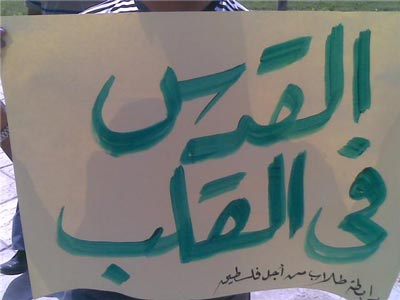 القدس
في القلب
رابطة طلاب من أجل فلسطين